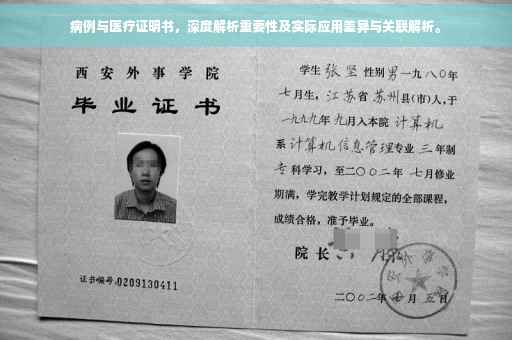 病例与医疗证明书，深度解析重要性及实际应用差异与关联解析。
西安外事学院
毕业证书
证书编号:0209130411
学生 张坚 性别 男 一九八〇年
七月生，江苏省 苏州县(市)人，于
一九九九年 九月入本院 计算机
系 计算机信息管理专业 三 年制
专科学习，至二〇〇二年 七月修业
期满，学完教学计划规定的全部课程，
成绩合格，准予毕业。
院长
二〇〇二年 月 五日